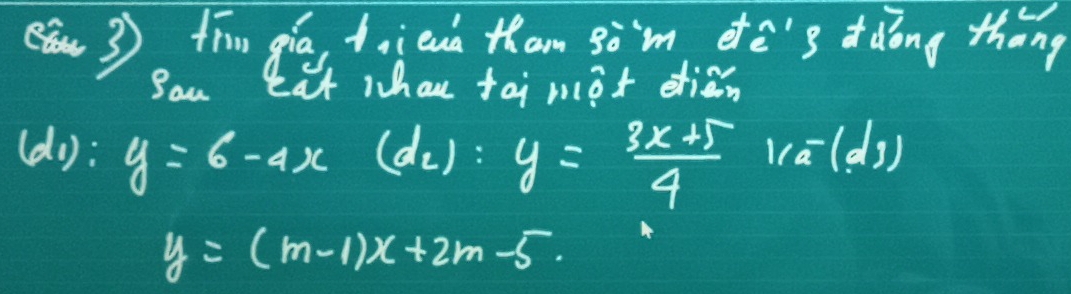 Câu 3) tìm giá trị của tham số m để 3 đường thẳng
sau cắt nhau tại một điểm
(d1): y = 6 - 4x (d2): y = \frac{3x+5}{4} và (d3)
y = (m-1)x + 2m - 5.